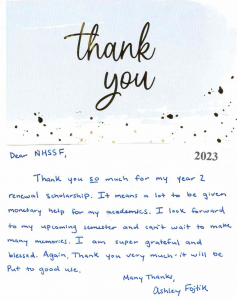 thank
you
2023
Dear NHSSF,
Thank you so much for my year 2
renewal scholarship. It means a lot to be given
monetary help for my academics. I look forward
to my upcoming semester and can't wait to make
many memories. I am super grateful and
blessed. Again, Thank you very much - it will be
Put to good use.
Many Thanks,
Ashley Fojtik